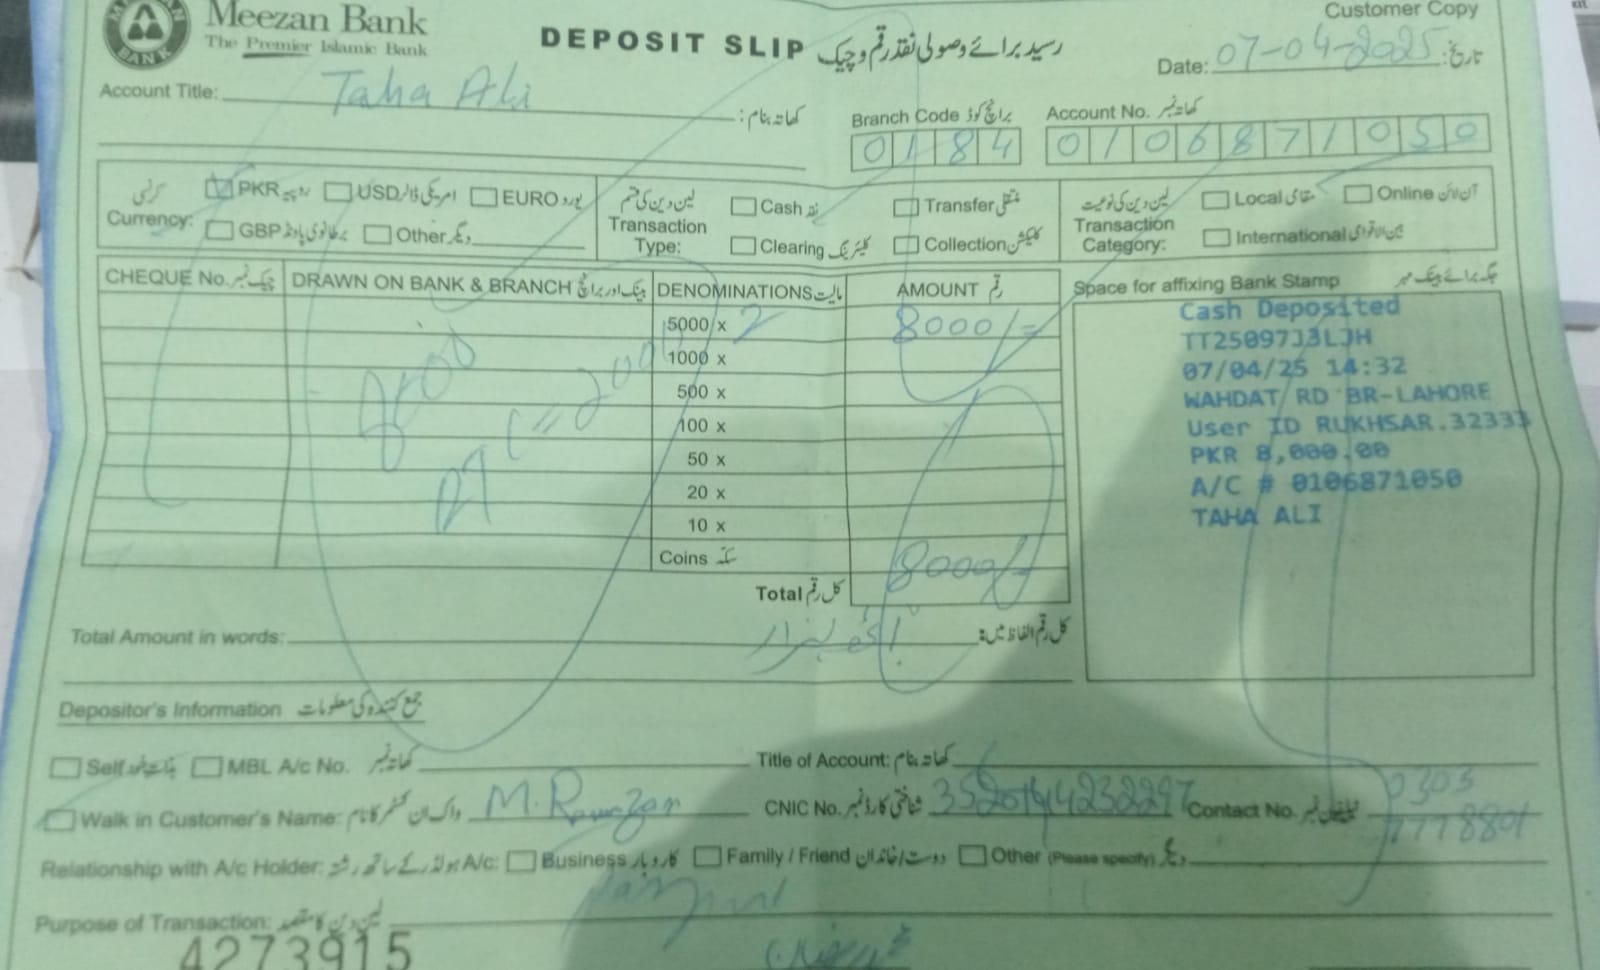 Meezan Bank
The Premier Islamic Bank
DEPOSIT SLIP رسید برائے وصولی نقد رقم و چیک
Customer Copy
Date: 07-04-2025 تاریخ:
Account Title: Taha Ali کھاتہ بنام:
Branch Code برانچ کوڈ
0184
Account No. کھاتہ نمبر
0106871050
Currency: کرنسی
PKR روپیہ USD امریکی ڈالر EURO یورو
GBP برطانوی پاؤنڈ Other دیگر
Transaction Type: لین دین کی قسم
Cash نقد Transfer منتقلی
Clearing کلیئرنگ Collection کلیکشن
Transaction Category: لین دین کی نوعیت
Local مقامی Online آن لائن
International بین الاقوامی
CHEQUE No. چیک نمبر DRAWN ON BANK & BRANCH بینک اور برانچ DENOMINATIONS مالیت AMOUNT رقم
5000 x 2 8000/=
1000 x
500 x
100 x
50 x
20 x
10 x
Coins سکہ
Total کل رقم 8000/-
Space for affixing Bank Stamp جگہ برائے بینک مہر
Cash Deposited
TT25097J3LJH
07/04/25 14:32
WAHDAT RD BR-LAHORE
User ID RUKHSAR.32333
PKR 8,000.00
A/C # 0106871050
TAHA ALI
Total Amount in words: ہزار کل رقم الفاظ میں:
Depositor's Information جمع کنندہ کی معلومات
Self بذات خود MBL A/c No. کھاتہ نمبر Title of Account: کھاتہ بنام:
Walk in Customer's Name: واک ان کسٹمر کا نام M. Ramzan CNIC No. شناختی کارڈ نمبر Contact No. ٹیلیفون نمبر 0303
7778801
Relationship with A/c Holder: اکاؤنٹ ہولڈر کے ساتھ رشتہ A/c: Business کاروبار Family / Friend دوست/خاندان Other (Please specify) دیگر
Purpose of Transaction: لین دین کا مقصد
4273915